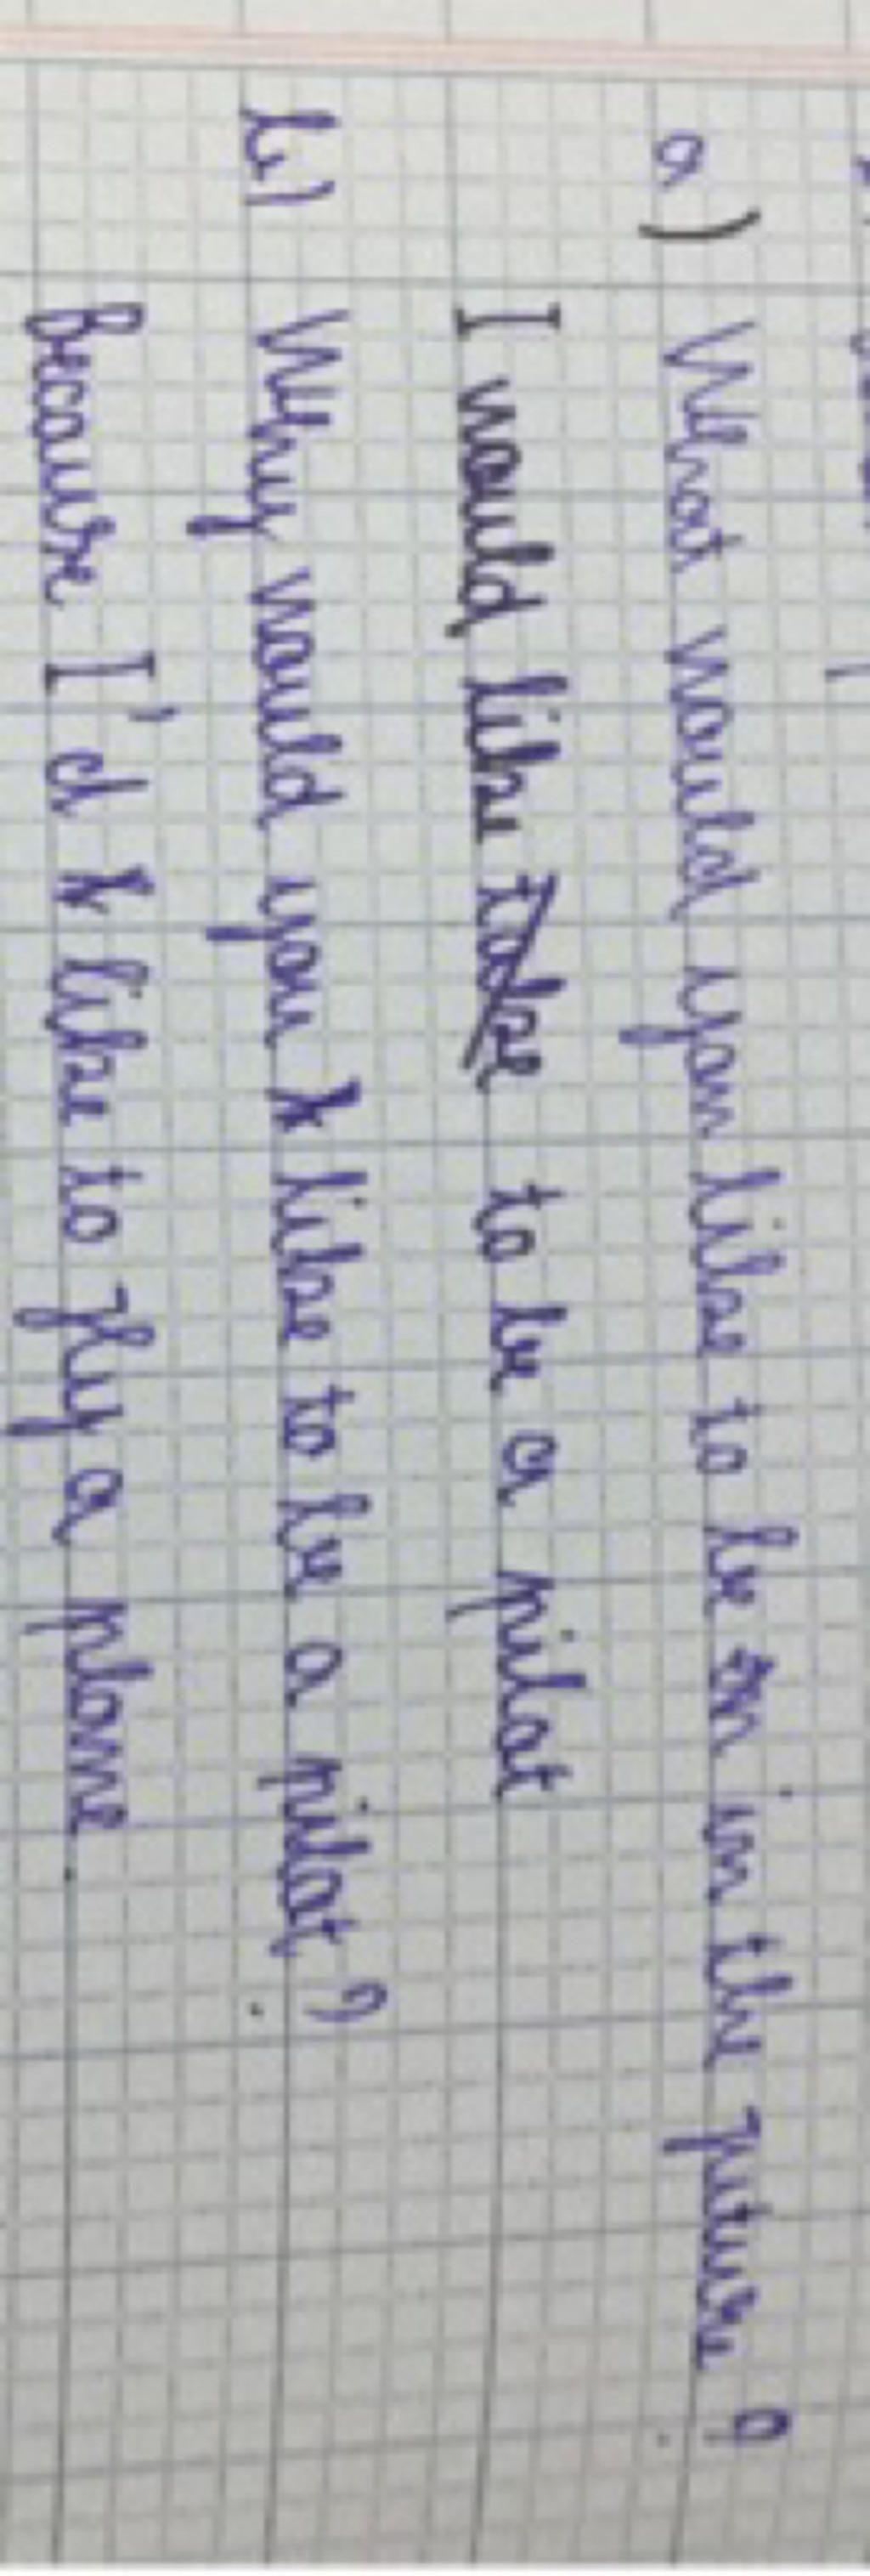 a) What would you like to be in the future ?
I would like to be a pilat
b) Why would you like to be a pilat ?
Because I'd like to fly a plane.